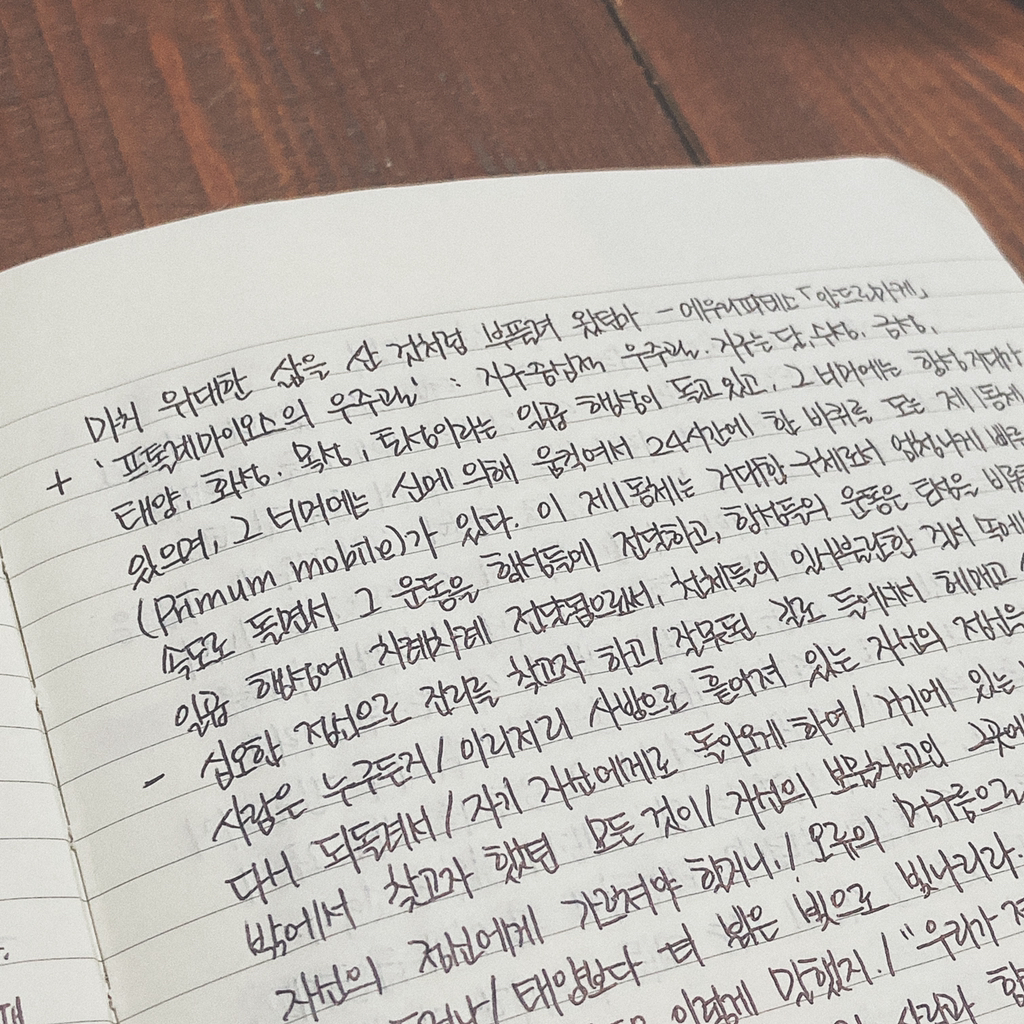 마치 위대한 삶을 산 것처럼 부풀려 왔던가 - 에우리피데스 「안드로마케」
+ '프톨레마이오스의 우주관' : 지구중심적 우주관. 지구는 달, 수성, 금성,
태양, 화성, 목성, 토성이라는 일곱 행성이 돌고 있고, 그 너머에는 항성천대가
있으며, 그 너머에는 신에 의해 움직여서 24시간에 한 바퀴를 도는 제1동체
(Primum mobile)가 있다. 이 제1동체는 거대한 구체로서 엄청나게 빠른
속도로 돌면서 그 운동을 행성들에 전달하고, 항성들의 운동은 다음을 바로
일곱 행성에 차례차례 전달됨으로써, 천체들의 일사불란한 질서 속에
- 심오한 정신으로 진리를 찾고자 하고/ 잘못된 길로 들어서서 헤매고
사람은 누구든지/ 이리저리 사방으로 흩어져 있는 자신의 정신을
다시 되돌려서/ 자기 자신에게로 돌아오게 하여/ 거기에 있는
밖에서 찾고자 했던 모든 것이/ 자신의 보물창고인 그곳에
자신의 정신에게 가르쳐야 할지니./ 오류의 먹구름으로
태양보다 더 밝은 빛으로 빛나리라.
이렇게 말했지./ "우리가